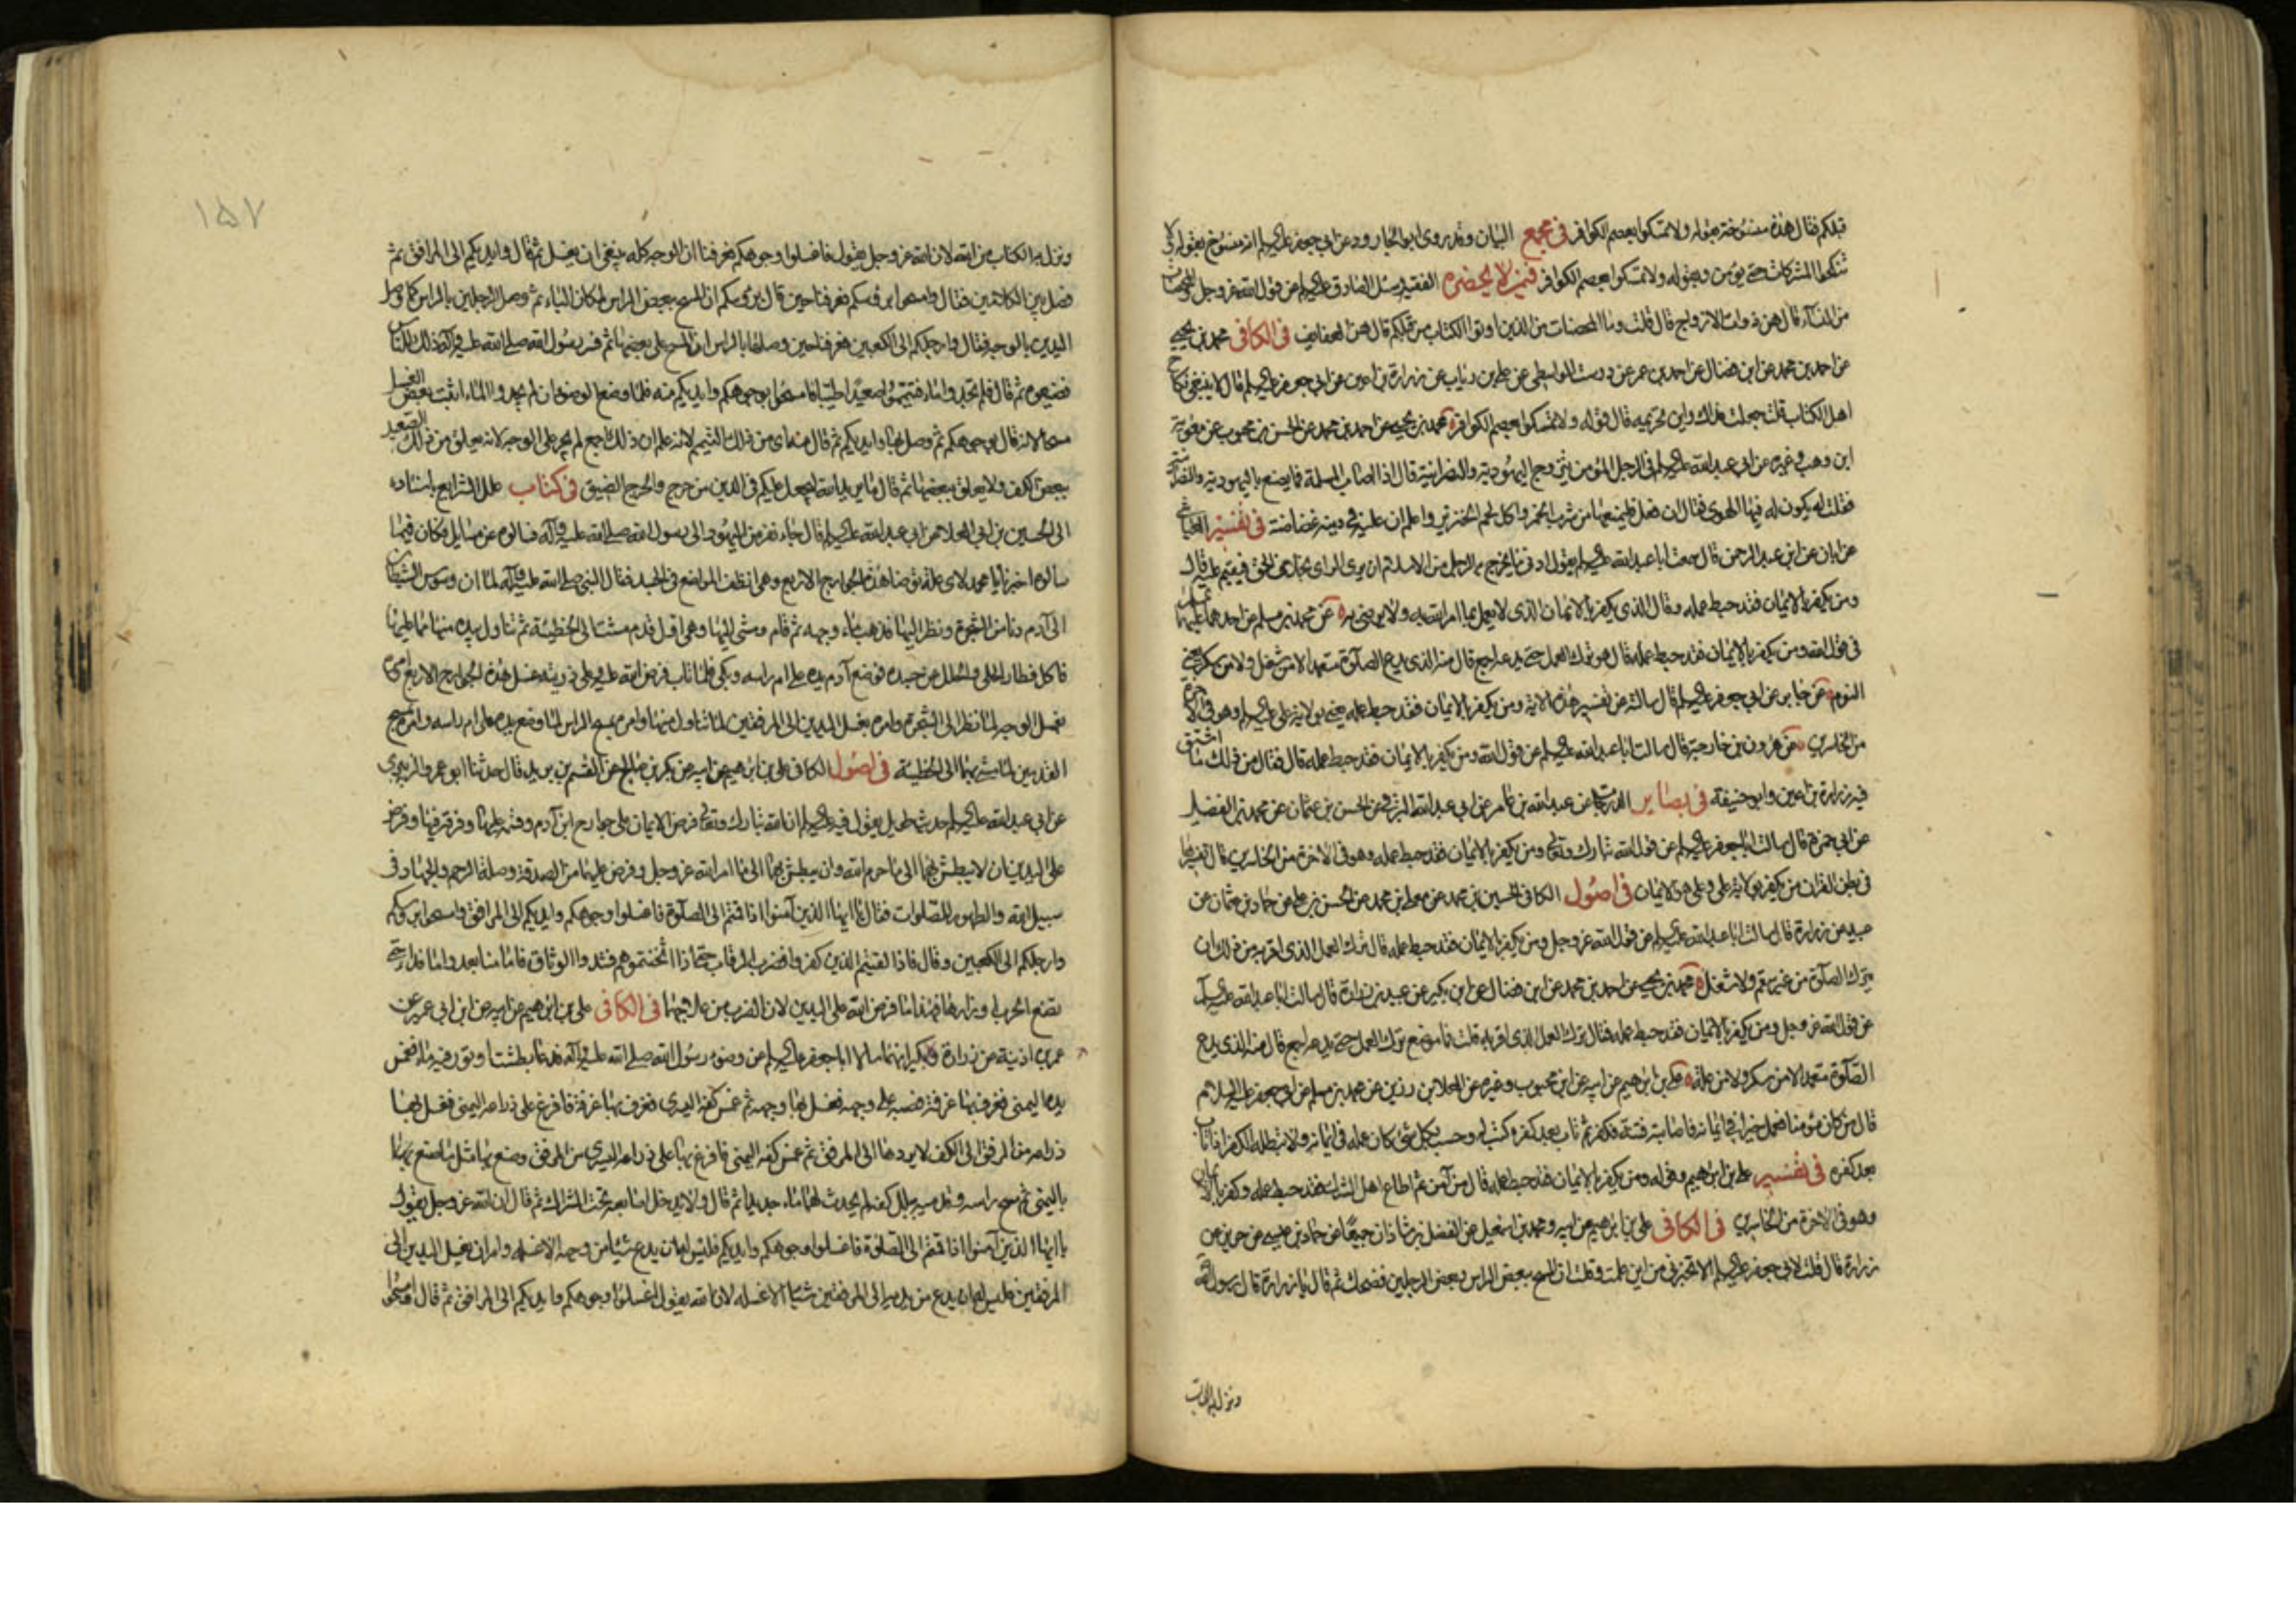 قبلكم فقال هذه منسوخة بقوله ولا تمسكوا بعصم الكوافر في مجمع البيان وقد روى ابو الجارود عن ابي جعفر عليه السلم انه منسوخ بقوله ولا
تنكحوا المشركات حتى يؤمن وبقوله ولا تمسكوا بعصم الكوافر فيمن لا يحضره الفقيه وسئل الصادق عليه السلم عن قول الله عز وجل والمحصنات
من النساء قال هن ذوات الازواج قال قلت وما المحصنات من الذين اوتوا الكتاب من قبلكم قال هن العفايف في الكافى محمد بن يحيى
عن احمد بن محمد عن ابن فضال عن احمد بن عمر عن درست الواسطى عن علي بن رئاب عن زرارة بن اعين عن ابي جعفر عليه السلم قال لا ينبغي نكاح
اهل الكتاب قلت جعلت فداك واين تحريمه قال قوله ولا تمسكوا بعصم الكوافر محمد بن يحيى عن احمد بن محمد عن الحسن بن محبوب عن معوية
ابن وهب وغيره عن ابي عبد الله عليه السلم في الرجل المؤمن يتزوج اليهودية والنصرانية قال اذا اصاب المسلمة فما يصنع باليهودية والنصرانية
فقلت له يكون له فيها الهوى فقال ان فعل فليمنعها من شرب الخمر واكل لحم الخنزير واعلم ان عليه في دينه غضاضة في تفسير العياشي
عن ابان عن ابن عبد الرحمن قال سمعت ابا عبد الله عليه السلم يقول ادنى ما يخرج به الرجل من الاسلام ان يرى الراى بخلاف الحق فيقيم عليه قال
ومن يكفر بالايمان فقد حبط عمله وقال الذى يكفر بالايمان الذى لا يعمل بما امر الله به ولا يرضى به عن محمد بن مسلم عن احدهما عليهما السلم
في قول الله ومن يكفر بالايمان فقد حبط عمله قال هو ترك العمل حتى يدعه اجمع قال منه الذى يدع الصلوة متعمدا لا من شغل ولا من سكر يعنى
النوم عن جابر عن ابي جعفر عليه السلم قال سالته عن تفسير هذه الاية ومن يكفر بالايمان فقد حبط عمله يعنى بولاية علي عليه السلم وهو في الاخرة
من الخاسرين عن هرون بن خارجة قال سالت ابا عبد الله عليه السلم عن قول الله ومن يكفر بالايمان فقد حبط عمله قال فقال من ذلك ما اشتق
فيه زرارة بن اعين وابو حنيفة في بصاير الدرجات عن عبد الله بن عامر عن ابي عبد الله البرقي عن الحسن بن عثمان عن محمد بن الفضيل
عن ابي حمزة قال سالت ابا جعفر عليه السلم عن قول الله تبارك وتعالى ومن يكفر بالايمان فقد حبط عمله وهو في الاخرة من الخاسرين قال تفسيرها
في بطن القران من يكفر بولاية علي وعلي هو الايمان في اصول الكافى الحسين بن محمد عن معلى بن محمد عن الحسن بن علي عن حماد بن عثمان عن
عبيد بن زرارة قال سالت ابا عبد الله عليه السلم عن قول الله عز وجل ومن يكفر بالايمان فقد حبط عمله قال ترك العمل الذى اقر به من ذلك ان
يترك الصلوة من غير سقم ولا شغل محمد بن يحيى عن احمد بن محمد عن ابن فضال عن ابن بكير عن عبيد بن زرارة قال سالت ابا عبد الله عليه السلم
عن قول الله عز وجل ومن يكفر بالايمان فقد حبط عمله فقال ترك العمل الذى اقر به قلت فما موضع ترك العمل حتى يدعه اجمع قال منه الذى يدع
الصلوة متعمدا لا من سكر ولا من علة علي بن ابرهيم عن ابيه عن ابن محبوب وغيره عن العلا بن رزين عن محمد بن مسلم عن ابي جعفر عليه السلام
قال من كان مؤمنا فعمل خيرا في ايمانه فاصابته فتنة فكفر ثم تاب بعد كفره كتب له وحسب بكل شئ كان عمله في ايمانه ولا يبطله الكفر اذا تاب
بعد كفره في تفسير علي بن ابرهيم وقوله ومن يكفر بالايمان فقد حبط عمله قال من آمن ثم اطاع اهل الشرك فقد حبط عمله وكفر بالايمان
وهو في الاخرة من الخاسرين في الكافى علي بن ابرهيم عن ابيه ومحمد بن اسمعيل عن الفضل بن شاذان جميعا عن حماد بن عيسى عن حريز عن
زرارة قال قلت لابي جعفر عليه السلم الا تخبرنى من اين علمت وقلت ان المسح ببعض الراس وبعض الرجلين فضحك ثم قال يا زرارة قال رسول الله
ونزل به الكتاب
١٥٧
ونزل به الكتاب من الله لان الله عز وجل يقول فاغسلوا وجوهكم فعرفنا ان الوجه كله ينبغى ان يغسل ثم قال وايديكم الى المرافق ثم
فصل بين الكلامين فقال وامسحوا برؤسكم فعرفنا حين قال برؤسكم ان المسح ببعض الراس لمكان الباء ثم وصل الرجلين بالراس كما وصل
اليدين بالوجه فقال وارجلكم الى الكعبين فعرفنا حين وصلها بالراس ان المسح على بعضها ثم فسر رسول الله صلى الله عليه وآله ذلك للناس
فضيعوه ثم قال فلم تجدوا ماء فتيمموا صعيدا طيبا فامسحوا بوجوهكم وايديكم منه فلما وضع الوضوء ان لم يجدوا الماء اثبت بعض الغسل
مسحا لانه قال بوجوهكم ثم وصل بها وايديكم ثم قال منه اى من ذلك التيمم لانه علم ان ذلك اجمع لم يجر على الوجه لانه يعلق من ذلك الصعيد
ببعض الكف ولا يعلق ببعضها ثم قال ما يريد الله ليجعل عليكم في الدين من حرج والحرج الضيق في كتاب علل الشرايع باسناده
الى الحسين بن ابي العلا عن ابي عبد الله عليه السلم قال جاء نفر من اليهود الى رسول الله صلى الله عليه وآله فسالوه عن مسايل فكان فيما
سالوه اخبرنا يا محمد لاى علة توضا هذه الجوارح الاربع وهى انظف المواضع في الجسد فقال النبي صلى الله عليه وآله لما ان وسوس الشيطان
الى آدم دنا من الشجرة ونظر اليها فذهب ماء وجهه ثم قام ومشى اليها وهى اول قدم مشت الى الخطيئة ثم تناول بيده منها ما عليها
فاكل فطار الحلى والحلل عن جسده فوضع آدم يده على ام راسه وبكى فلما تاب فرض الله عليه وعلى ذريته غسل هذه الجوارح الاربع امره
بغسل الوجه لما نظر الى الشجرة وامره بغسل اليدين الى المرفقين لما تناول منها وامره بمسح الراس لما وضع يده على ام راسه وامره بمسح
القدمين لما مشى بهما الى الخطيئة في اصول الكافى علي بن ابرهيم عن ابيه عن بكر بن صالح عن القسم بن بريد قال حدثنا ابو عمرو الزبيرى
عن ابي عبد الله عليه السلم حديث طويل يقول فيه عليه السلم ان الله تبارك وتعالى فرض الايمان على جوارح ابن آدم وقسمه عليها وفرقه فيها وفرض
على اليدين ان لا يبطش بهما الى ما حرم الله وان يبطش بهما الى ما امر الله عز وجل وفرض عليهما من الصدقة وصلة الرحم والجهاد في
سبيل الله والطهور للصلوات فقال يا ايها الذين آمنوا اذا قمتم الى الصلوة فاغسلوا وجوهكم وايديكم الى المرافق وامسحوا برؤسكم
وارجلكم الى الكعبين وقال فاذا لقيتم الذين كفروا فضرب الرقاب حتى اذا اثخنتموهم فشدوا الوثاق فاما منا بعد واما فداء حتى
تضع الحرب اوزارها فهذا ما فرض الله على اليدين لان الضرب من علاجهما في الكافى علي بن ابرهيم عن ابيه عن ابن ابي عمير عن
عمر بن اذينة عن زرارة وبكير انهما سالا ابا جعفر عليه السلم عن وضوء رسول الله صلى الله عليه وآله فدعا بطشت او تور فيه ماء فغمس
يده اليمنى فغرف بها غرفة فصبه على وجهه فغسل بها وجهه ثم غمس كفه اليسرى فغرف بها غرفة فافرغ على ذراعه اليمنى فغسل بها
ذراعه من المرفق الى الكف لا يردها الى المرفق ثم غمس كفه اليمنى فافرغ بها على ذراعه اليسرى من المرفق وصنع بها مثل ما صنع بها
باليمنى ثم مسح راسه وقدميه ببلل كفه لم يحدث لهما ماء جديدا ثم قال ولا يدخل اصابعه تحت الشراك ثم قال ان الله عز وجل يقول
يا ايها الذين آمنوا اذا قمتم الى الصلوة فاغسلوا وجوهكم وايديكم فليس له ان يدع شيئا من وجهه الا غسله وامر ان يغسل اليدين الى
المرفقين فليس له ان يدع من يديه الى المرفقين شيئا الا غسله لان الله يقول اغسلوا وجوهكم وايديكم الى المرافق ثم قال امسحوا